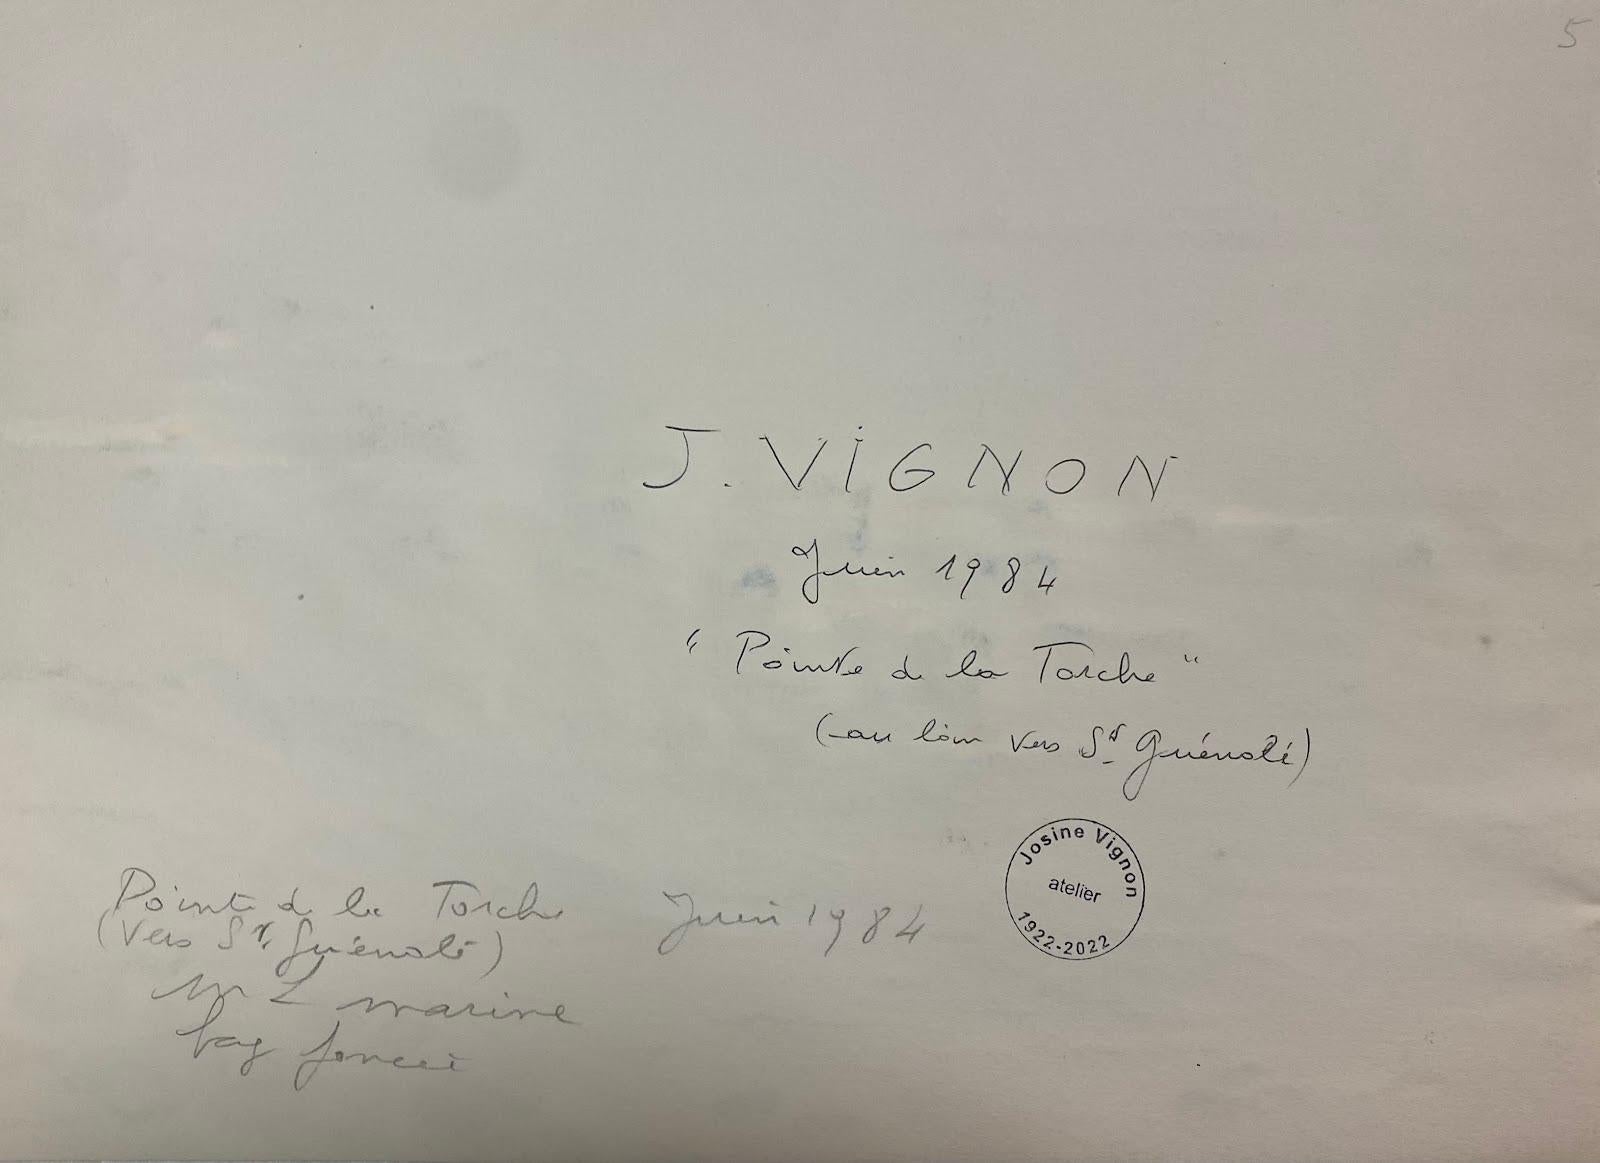 5
J. VIGNON
Juin 1984
"Pointe de la Torche"
(au loin vers St Guénolé)
Josine Vignon
atelier
1922-2022
Pointe de la Torche Juin 1984
(Vers St. Guénolé)
marine